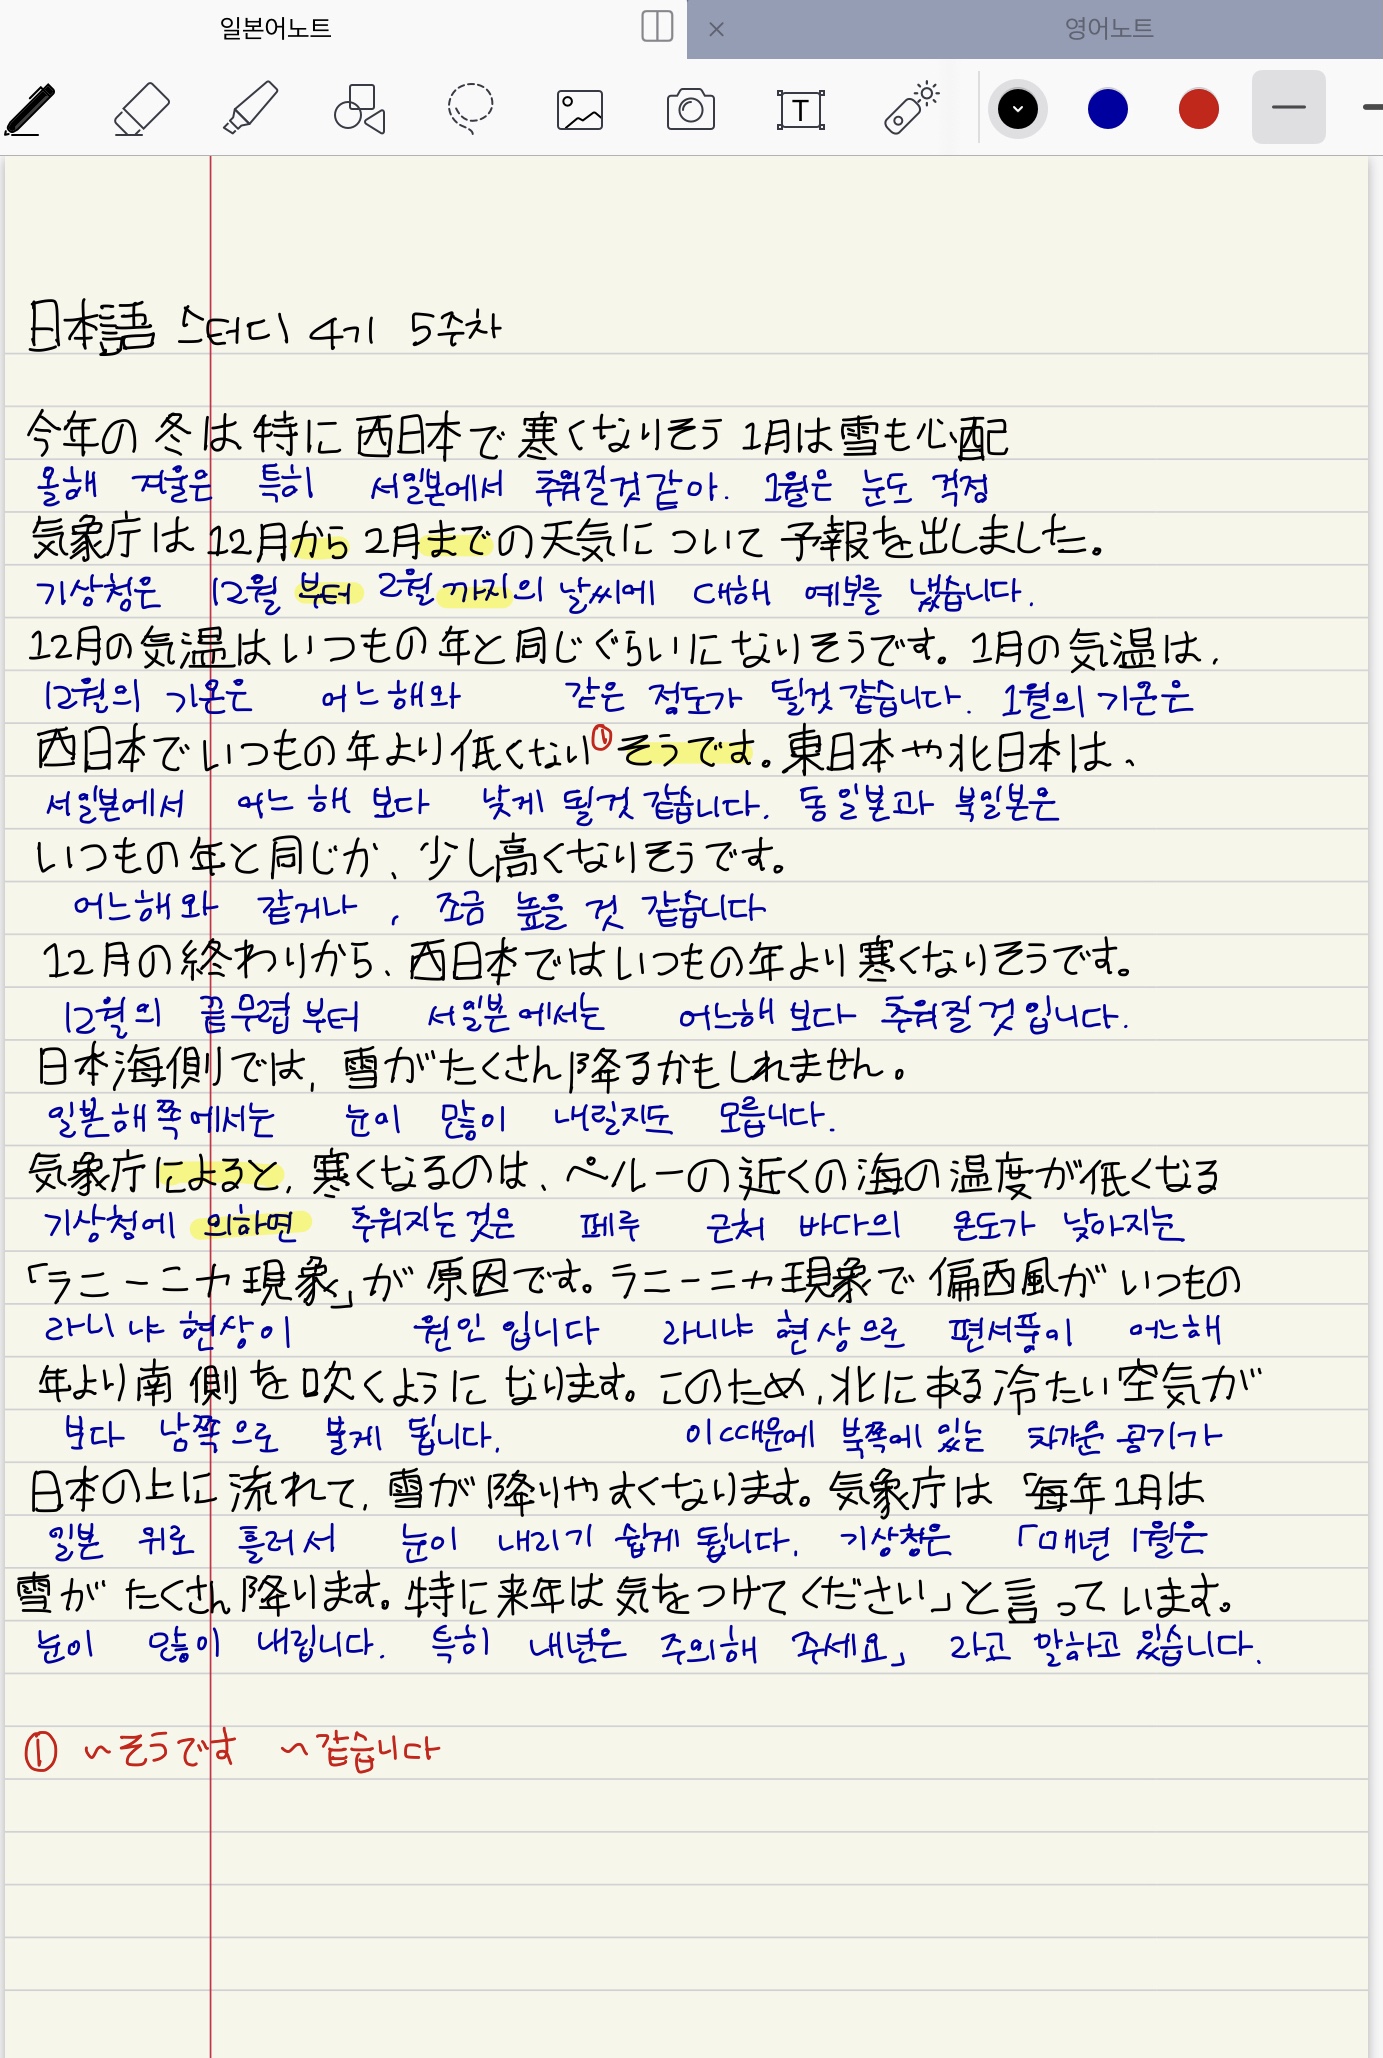 일본어노트
영어노트
T
日本語 스터디 4기 5주차
今年の冬は特に西日本で寒くなりそう 1月は雪も心配
올해 겨울은 특히 서일본에서 추워질것 같아. 1월은 눈도 걱정
気象庁は12月から2月までの天気について予報を出しました。
기상청은 12월 부터 2월 까지의 날씨에 대해 예보를 냈습니다.
12月の気温はいつもの年と同じぐらいになりそうです。1月の気温は、
12월의 기온은 어느해와 같은 정도가 될것 같습니다. 1월의 기온은
西日本でいつもの年より低くない①そうです。東日本や北日本は、
서일본에서 어느 해 보다 낮게 될것 같습니다. 동일본과 북일본은
いつもの年と同じか、少し高くなりそうです。
어느해와 같거나, 조금 높을 것 같습니다
12月の終わりから、西日本ではいつもの年より寒くなりそうです。
12월의 끝무렵부터 서일본에서는 어느해 보다 추워질것입니다.
日本海側では、雪がたくさん降るかもしれません。
일본해쪽에서는 눈이 많이 내릴지도 모릅니다.
気象庁によると、寒くなるのは、ペルーの近くの海の温度が低くなる
기상청에 의하면 추워지는것은 페루 근처 바다의 온도가 낮아지는
「ラニーニャ現象」が原因です。ラニーニャ現象で偏西風がいつもの
라니냐 현상이 원인입니다 라니냐 현상으로 편서풍이 어느해
年より南側を吹くようになります。このため、北にある冷たい空気が
보다 남쪽으로 불게 됩니다. 이때문에 북쪽에 있는 차가운 공기가
日本の上に流れて、雪が降りやすくなります。気象庁は「毎年1月は
일본 위로 흘러서 눈이 내리기 쉽게 됩니다. 기상청은 「매년 1월은
雪がたくさん降ります。特に来年は気をつけてください」と言っています。
눈이 많이 내립니다. 특히 내년은 주의해 주세요」 라고 말하고있습니다.
① ~そうです ~같습니다